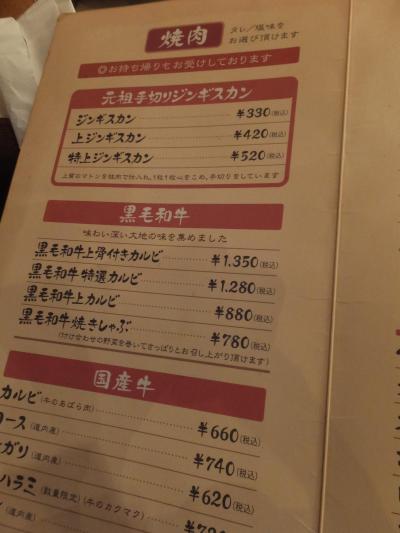 焼肉
タレ／塩味を
お選び頂けます
◎お持ち帰りもお受けしております
元祖手切りジンギスカン
ジンギスカン ¥330(税込)
上ジンギスカン ¥420(税込)
特上ジンギスカン ¥520(税込)
上質のマトンを枝肉で仕入れ、1粒1粒心をこめ、手切りをしています
黒毛和牛
味わい深い大地の味を集めました
黒毛和牛上骨付きカルビ ¥1,350(税込)
黒毛和牛 特選カルビ ¥1,280(税込)
黒毛和牛上カルビ ¥880(税込)
黒毛和牛焼きしゃぶ ¥780(税込)
(付け合わせの野菜を巻いてさっぱりとお召し上がり頂けます)
国産牛
カルビ(牛のあばら肉) ¥660(税込)
ロース(道内産) ¥740(税込)
サガリ(道内産) ¥620(税込)
ハラミ(数量限定)(牛のカクマク)
(道内産)